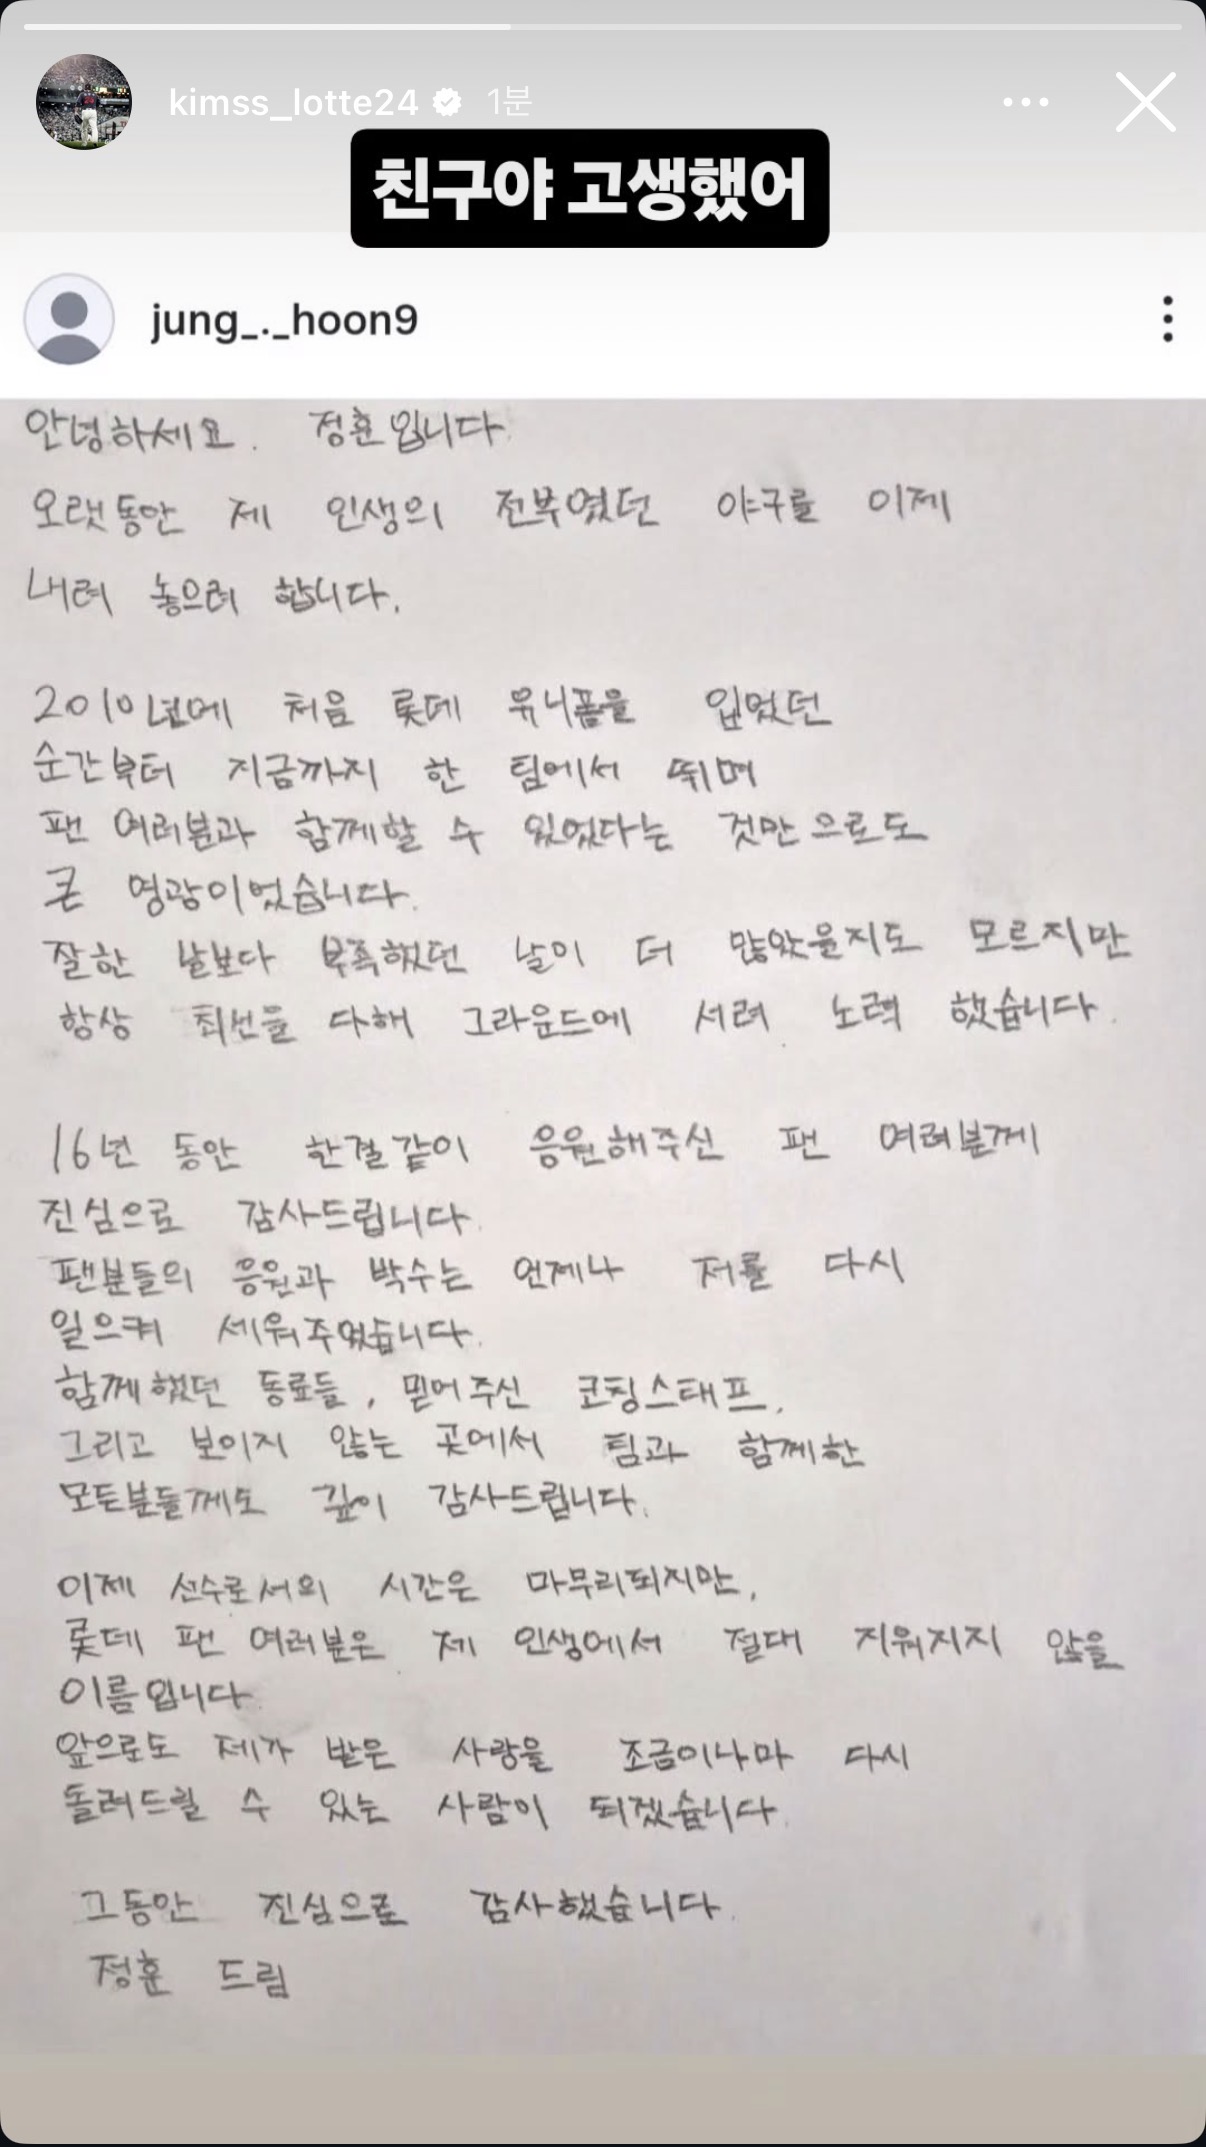 kimss_lotte24 1분
친구야 고생했어
jung_._hoon9
안녕하세요. 정훈입니다.
오랫동안 제 인생의 전부였던 야구를 이제
내려 놓으려 합니다.
2010년에 처음 롯데 유니폼을 입었던
순간부터 지금까지 한 팀에서 뛰며
팬 여러분과 함께할 수 있었다는 것만으로도
큰 영광이었습니다.
잘한 날보다 부족했던 날이 더 많았을지도 모르지만
항상 최선을 다해 그라운드에 서려 노력 했습니다.
16년 동안 한결같이 응원해주신 팬 여러분께
진심으로 감사드립니다.
팬분들의 응원과 박수는 언제나 저를 다시
일으켜 세워주었습니다.
함께했던 동료들, 믿어주신 코칭스태프,
그리고 보이지 않는 곳에서 팀과 함께한
모든분들께도 깊이 감사드립니다.
이제 선수로서의 시간은 마무리되지만,
롯데 팬 여러분은 제 인생에서 절대 지워지지 않을
이름입니다.
앞으로도 제가 받은 사랑을 조금이나마 다시
돌려드릴 수 있는 사람이 되겠습니다.
그동안 진심으로 감사했습니다.
정훈 드림